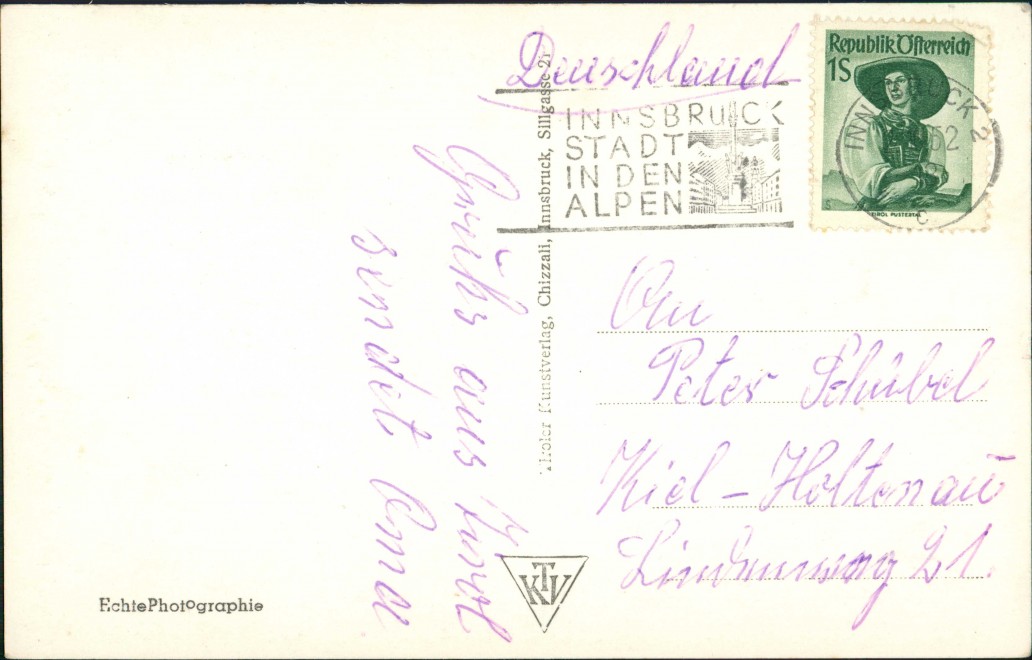 Deuschland
Republik Österreich
1S
TIROL PUSTERTAL
INNSBRUCK 2
52
c
INNSBRUCK
STADT
IN DEN
ALPEN
Tiroler Kunstverlag, Chizzali, Innsbruck, Sillgasse 21
Grüße aus Tirol
sendet
An
Peter Schübel
Kiel - Holtenau
Lindenweg 21.
KTV
Echte Photographie